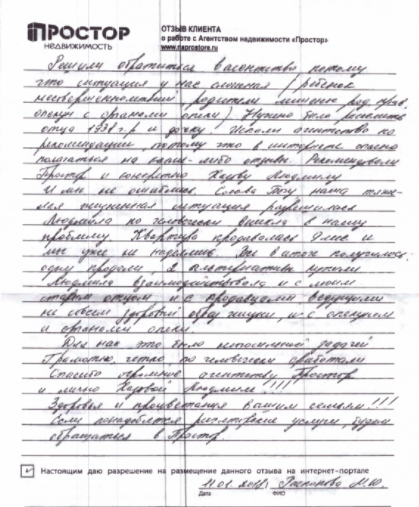 ПРОСТОР
недвижимость
ОТЗЫВ КЛИЕНТА
о работе с Агентством недвижимости «Простор»
www.naprostore.ru
Решили обратиться в агентство потому
что ситуация у нас сложная (ребенок
несовершеннолетний, родители лишены род. прав,
опекун с органами опеки) Нужно было расселить
отца 1938 г.р и дочку. Искали агентство по
рекомендации, потому что в интернете опасно
полагаться на какие-либо отзывы. Рекомендовали
Простор и конкретно Людмилу
И мы не ошиблись. Слава Богу наша тяже-
лая жизненная ситуация разрешилась
Людмила по человечески вникла в нашу
проблему Квартира продавалась 9 мес и
мы уже не надеялись. Но в итоге получилось:
одну продали, 2 альтернативы купили
Людмила взаимодействовала и с моим
старым отцом и с продавцами ведущими
не совсем здоровый образ жизни, и с опекуном
и органами опеки.
Для нас это было непосильной задачей
Грамотно, четко, по человечески сработали
Спасибо огромное агентству Простор
и лично Людмиле!!!
Здоровья и процветания Вашим семьям!!!
Если понадобятся риэлтовские услуги, будем
обращаться в Простор
Настоящим даю разрешение на размещение данного отзыва на интернет-портале
11.02.2018г М.Ю.
Дата ФИО